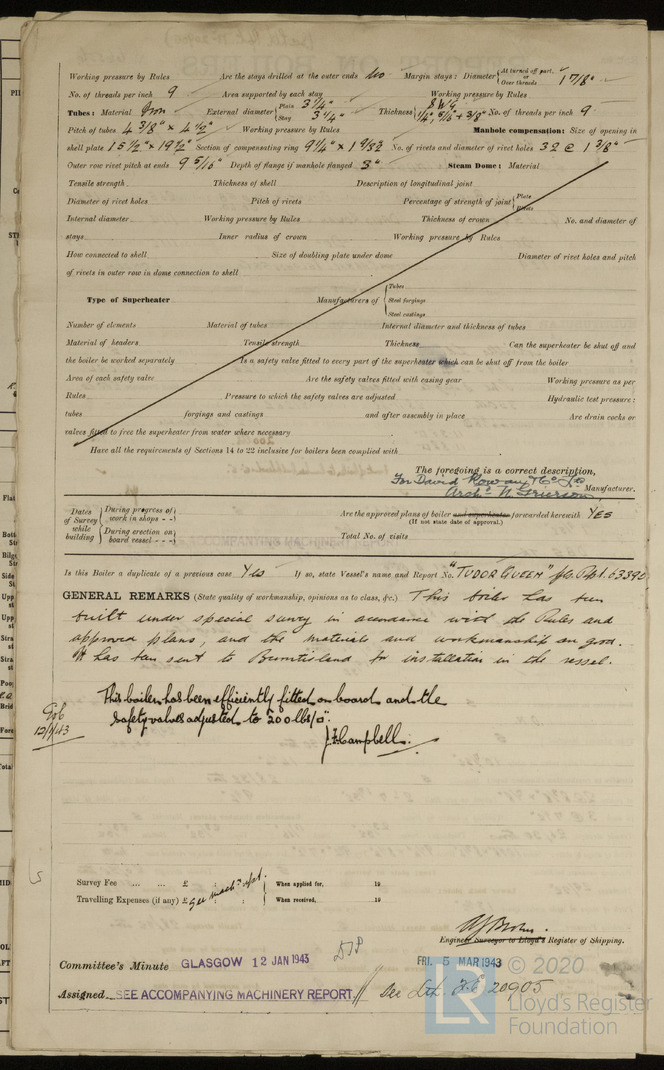 Working pressure by Rules Are the stays drilled at the outer ends No Margin stays: Diameter { At turned off part, or Over threads 1 7/8"
No. of threads per inch 9 Area supported by each stay Working pressure by Rules
Tubes: Material Iron External diameter { Plain 3 1/4" Stay 3 1/4" Thickness { 8 WG 1/4", 5/16 + 3/8" No. of threads per inch 9
Pitch of tubes 4 3/8" x 4 1/2" Working pressure by Rules Manhole compensation: Size of opening in
shell plate 15 1/2" x 19 1/2" Section of compensating ring 9 1/4" x 1 9/32 No. of rivets and diameter of rivet holes 32 @ 1 3/8"
Outer row rivet pitch at ends 9 5/16" Depth of flange if manhole flanged 3" Steam Dome: Material
Tensile strength Thickness of shell Description of longitudinal joint
Diameter of rivet holes Pitch of rivets Percentage of strength of joint { Plate Rivets
Internal diameter Working pressure by Rules Thickness of crown No. and diameter of
stays Inner radius of crown Working pressure by Rules
How connected to shell Size of doubling plate under dome Diameter of rivet holes and pitch
of rivets in outer row in dome connection to shell
Type of Superheater Manufacturers of { Tubes Steel forgings Steel castings
Number of elements Material of tubes Internal diameter and thickness of tubes
Material of headers Tensile strength Thickness Can the superheater be shut off and
the boiler be worked separately Is a safety valve fitted to every part of the superheater which can be shut off from the boiler
Area of each safety valve Are the safety valves fitted with easing gear Working pressure as per
Rules Pressure to which the safety valves are adjusted Hydraulic test pressure:
tubes forgings and castings and after assembly in place Are drain cocks or
valves fitted to free the superheater from water where necessary
Have all the requirements of Sections 14 to 22 inclusive for boilers been complied with
The foregoing is a correct description,
For David Rowan & Co Ld
Archd N Grierson Manufacturer.
Dates of Survey while building { During progress of work in shops - - During erection on board vessel - - -
Are the approved plans of boiler and superheater forwarded herewith YES
(If not state date of approval.)
Total No. of visits
Is this Boiler a duplicate of a previous case Yes If so, state Vessel's name and Report No. "TUDOR QUEEN" Rpt. 63390
GENERAL REMARKS (State quality of workmanship, opinions as to class, &c.) This boiler has been
built under special survey in accordance with the Rules and
approved plans, and the materials and workmanship are good.
It has been sent to Burntisland for installation in the vessel.
This boiler has been efficiently fitted on board and the
safety valves adjusted to 200 lbs/□".
12/1/43
J F Campbell.
Survey Fee ... ... £ : : When applied for, 19
Travelling Expenses (if any) £ See mach. rpt. When received, 19
Engineer Surveyor to Lloyd's Register of Shipping.
Committee's Minute GLASGOW 12 JAN 1943
FRI. 5 MAR 1943
Assigned SEE ACCOMPANYING MACHINERY REPORT
20905
© 2020
LR
Lloyd's Register
Foundation